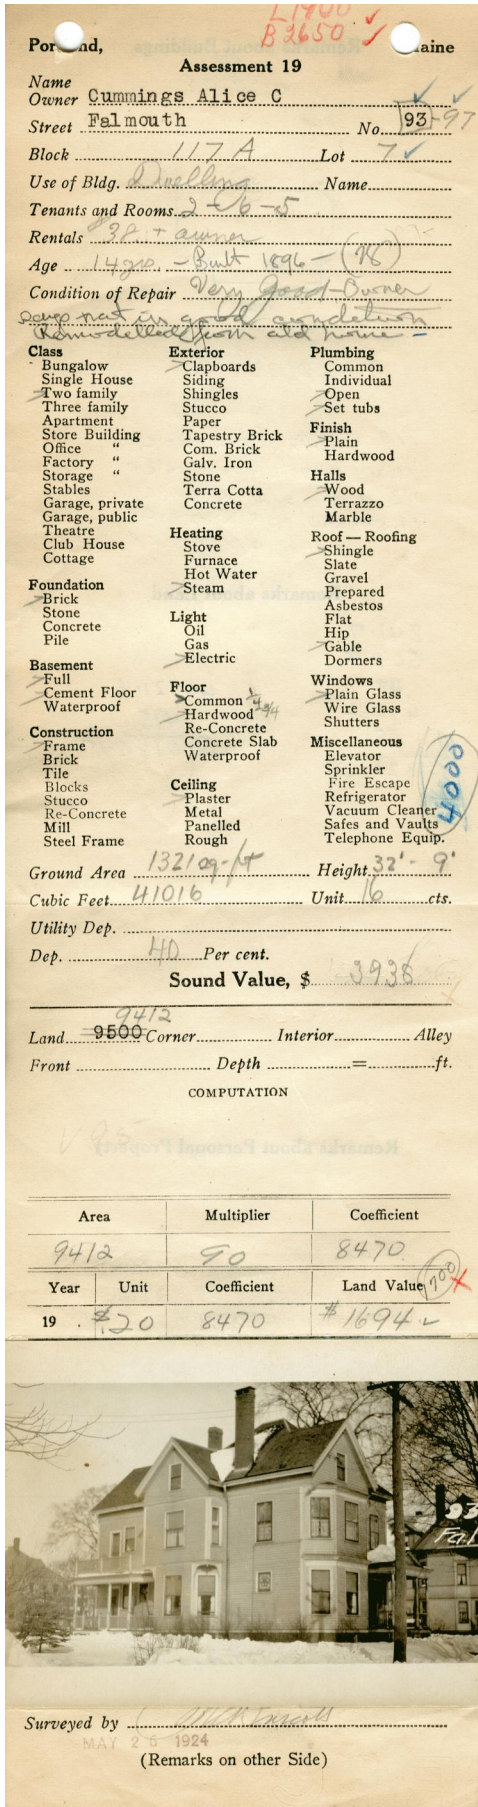 L1700
B2650
Portland, Maine
Assessment 19
Name
Owner Cummings Alice C
Street Falmouth No. 93-97
Block 117 A Lot 7
Use of Bldg. Dwelling Name
Tenants and Rooms 2-6-5
Rentals 38 + owner
Age 14 yrs. - Built 1896 - (28)
Condition of Repair Very Good - Owner
says not in good condition
Remodelled from old home -
Class
Bungalow
Single House
Two family
Three family
Apartment
Store Building
Office "
Factory "
Storage "
Stables
Garage, private
Garage, public
Theatre
Club House
Cottage
Foundation
Brick
Stone
Concrete
Pile
Basement
Full
Cement Floor
Waterproof
Construction
Frame
Brick
Tile
Blocks
Stucco
Re-Concrete
Mill
Steel Frame
Exterior
Clapboards
Siding
Shingles
Stucco
Paper
Tapestry Brick
Com. Brick
Galv. Iron
Stone
Terra Cotta
Concrete
Heating
Stove
Furnace
Hot Water
Steam
Light
Oil
Gas
Electric
Floor
Common
Hardwood
Re-Concrete
Concrete Slab
Waterproof
Ceiling
Plaster
Metal
Panelled
Rough
Plumbing
Common
Individual
Open
Set tubs
Finish
Plain
Hardwood
Halls
Wood
Terrazzo
Marble
Roof — Roofing
Shingle
Slate
Gravel
Prepared
Asbestos
Flat
Hip
Gable
Dormers
Windows
Plain Glass
Wire Glass
Shutters
Miscellaneous
Elevator
Sprinkler
Fire Escape
Refrigerator
Vacuum Cleaner
Safes and Vaults
Telephone Equip.
4000
Ground Area 1321 sq-ft Height 32' - 9'
Cubic Feet 41016 Unit 16 cts.
Utility Dep.
Dep. 40 Per cent.
Sound Value, $ 3938
9412
Land 9500 Corner Interior Alley
Front Depth = ft.
COMPUTATION
Area Multiplier Coefficient
9412 90 8470
Year Unit Coefficient Land Value 1700
19 $.20 8470 $1694
93
Fal
Surveyed by
MAY 26 1924
(Remarks on other Side)